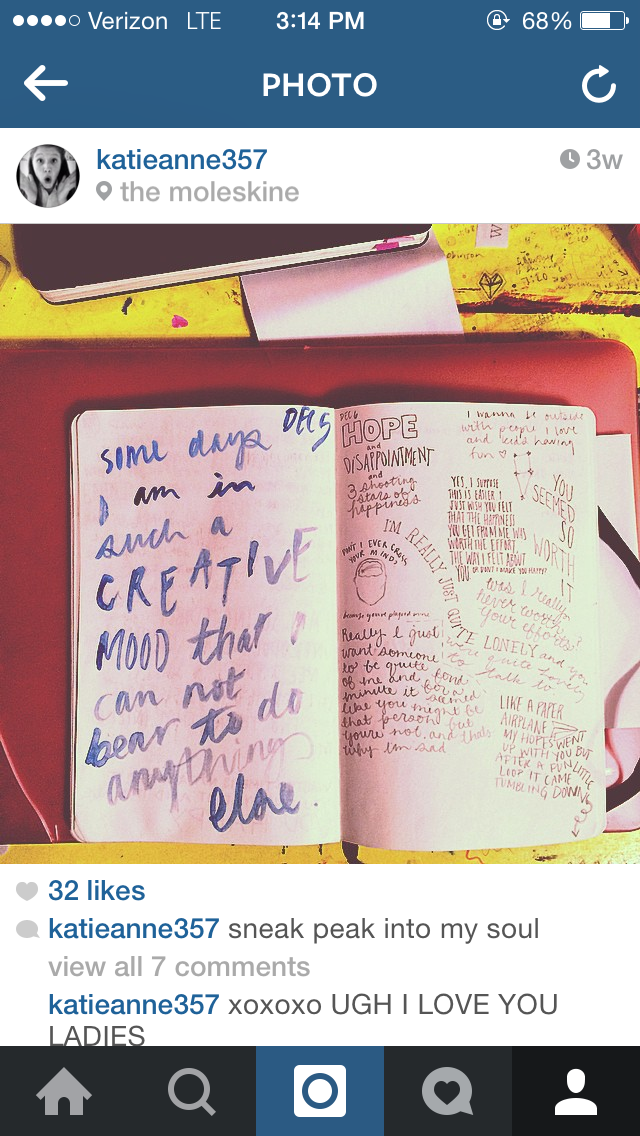 Verizon LTE 3:14 PM 68%
PHOTO
katieanne357 3w
the moleskine
DEC 5
some days
I am in
such a
CREATIVE
MOOD that
can not
bear to do
anything
else.
DEC 6
HOPE
and
DISAPPOINTMENT
and
3 shooting
stars of
happiness
I wanna be outside
with people I love
and kids having
fun
YES, I SUPPOSE
THIS IS EASIER I
JUST WISH YOU FELT
THAT THE HAPPINESS
YOU GET FROM ME WAS
WORTH THE EFFORT
THE WAY I FELT ABOUT
YOU OR DON'T I MAKE YOU HAPPY?
YOU
SEEMED
SO
WORTH
IT
I'M REALLY JUST QUITE LONELY and you
were quite lovely
to talk to
DON'T I EVER CROSS
YOUR MIND?
because you've played mine
was I really
never worth
your efforts?
Really I just
want someone
to be quite fond
of me and for a
minute it seemed
like you might be
that person but
you're not. and thats
why im sad
LIKE A PAPER
AIRPLANE
MY HOPES WENT
UP WITH YOU BUT
AFTER A FUN LITTLE
LOOP IT CAME
TUMBLING DOWN
32 likes
katieanne357 sneak peak into my soul
view all 7 comments
katieanne357 xoxoxo UGH I LOVE YOU
LADIES